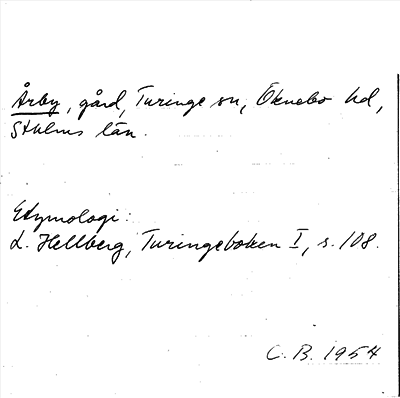 Årby, gård, Turinge sn, Öknebo hd,
Sthlms län.
Etymologi:
L. Hellberg, Turingeboken I, s. 108.
C. B. 1954